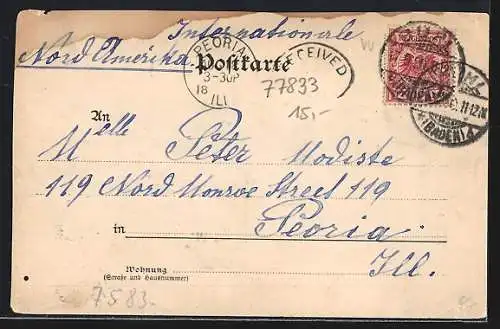 Internationale
Nord Amerika
Postkarte
PEORIA
3-30P
18
ILL
RECEIVED
77833
15,-
(BADEN)
11-12N
An
Melle Peter Modiste
119 Nord Monroe Street 119
in Peoria
Ill.
Wohnung
(Straße und Hausnummer)
7583-